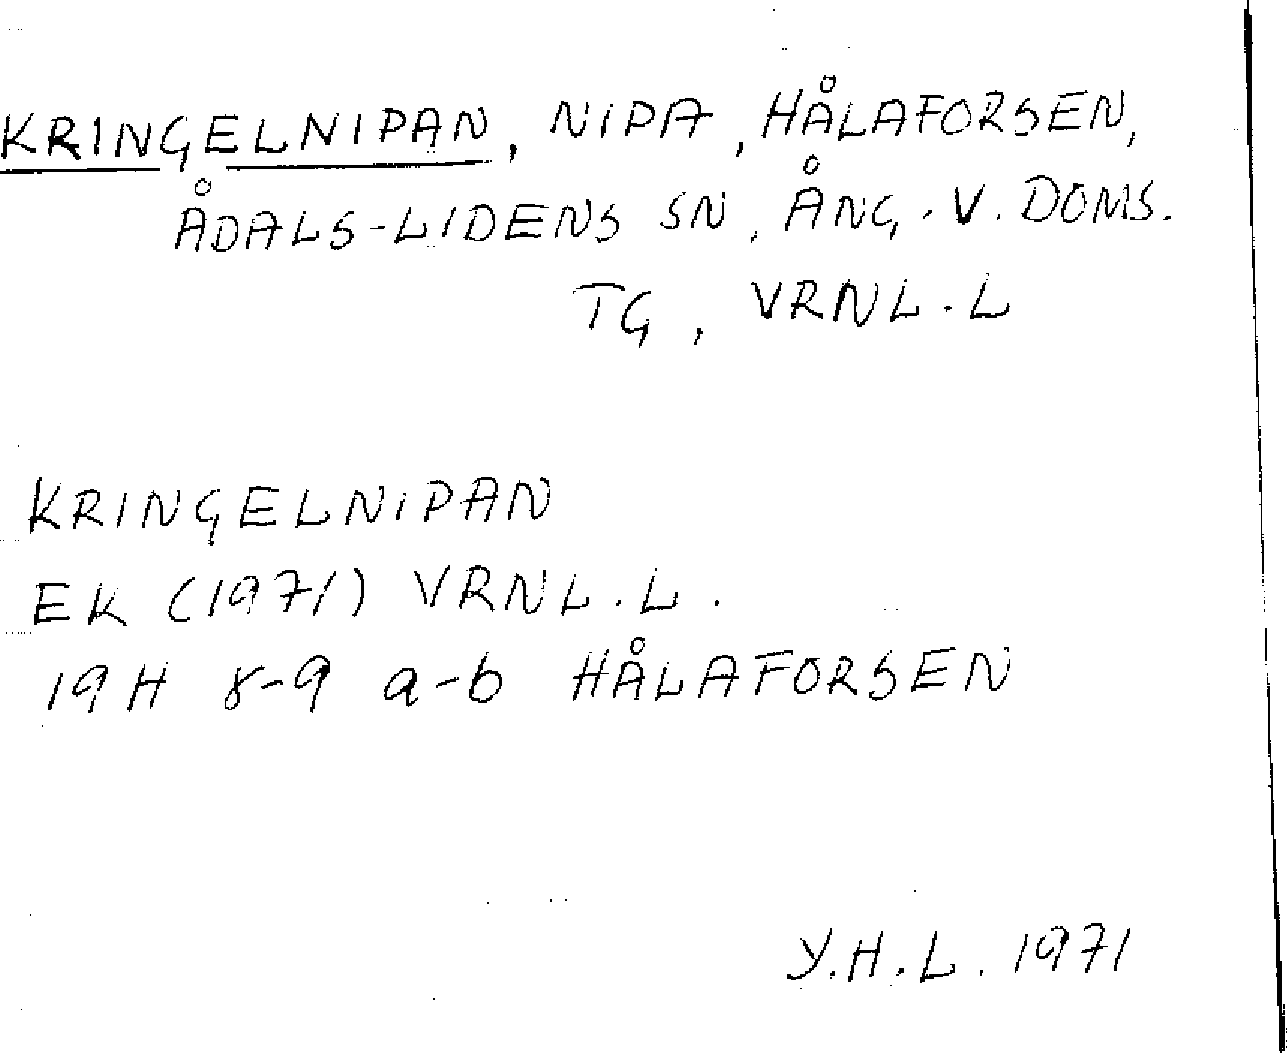 KRINGELNIPAN, NIPA, HÅLAFORSEN,
ÅDALS-LIDENS SN, ÅNG. V. DOMS.
TG, VRNL.L
KRINGELNIPAN
EK (1971) VRNL.L.
19 H 8-9 a-b HÅLAFORSEN
Y.H.L. 1971